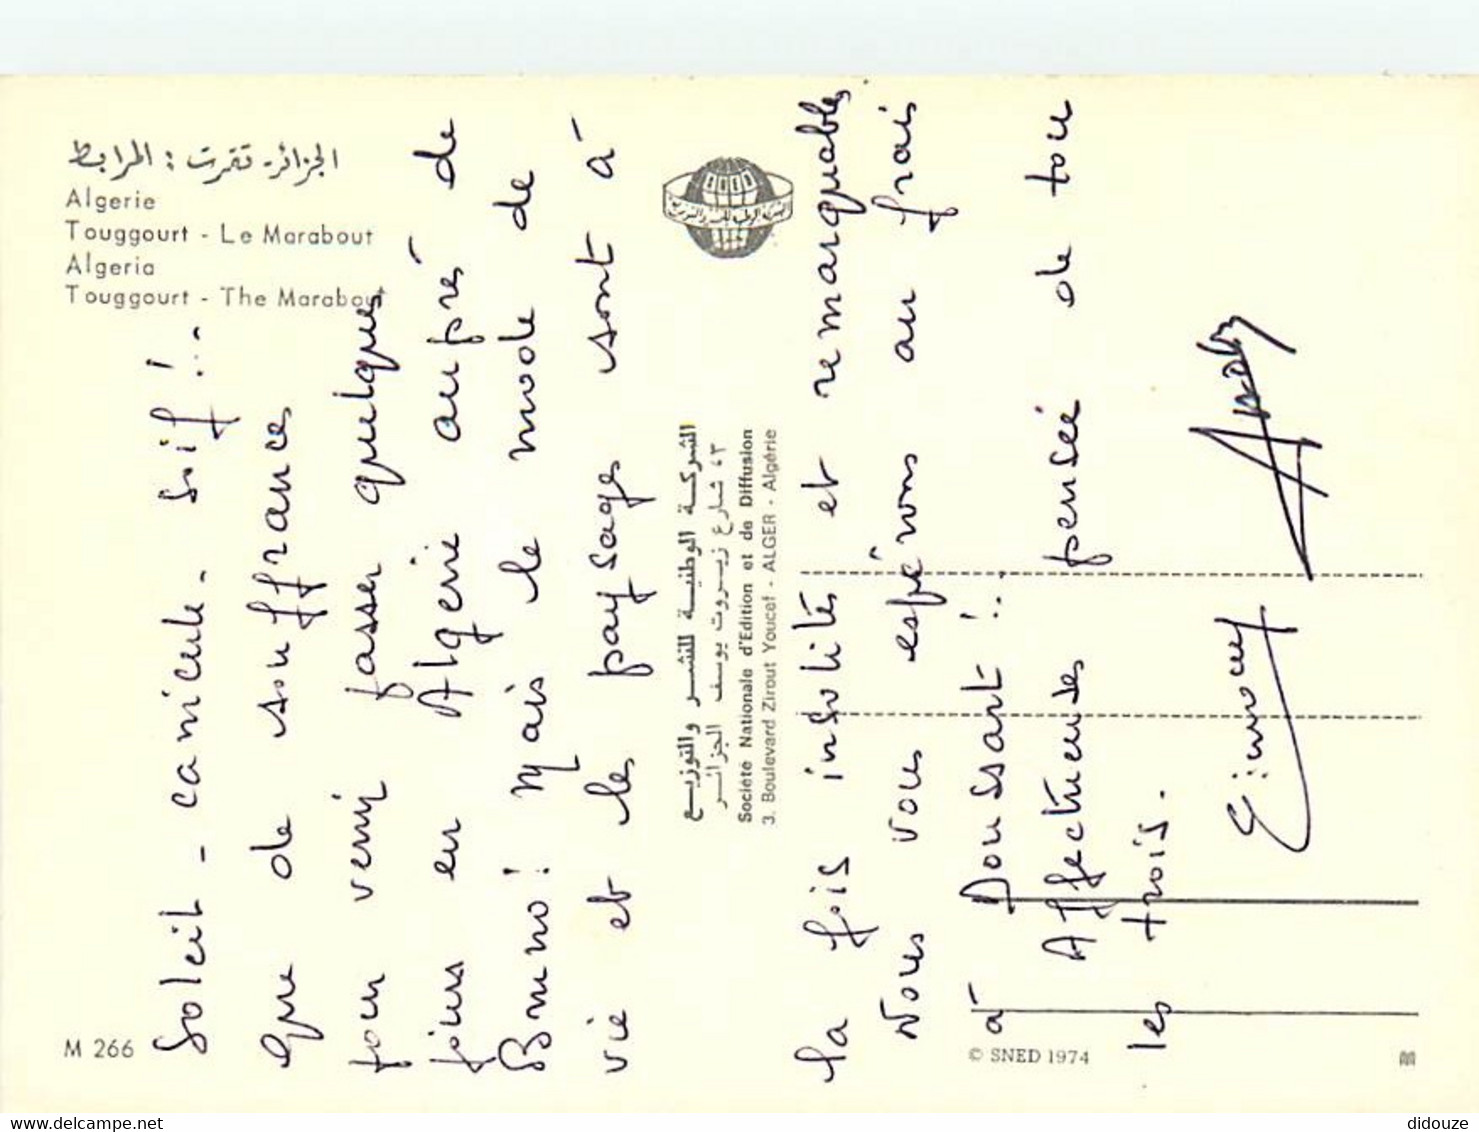 الجزائر - تقرت : المرابط
Algerie
Touggourt - Le Marabout
Algeria
Touggourt - The Marabout
Soleil - canicule - soif !..
Que de souffrance
pour venir passer quelques
jours en Algerie auprés de
Bruno! Mais le mode de
vie et le paysage sont à
la fois insolites et remarquables
Nous vous espérons au frais
à Doussard !..
Affectueuse pensée de tou
les trois.
الشركة الوطنية للنشر والتوزيع
٣، شارع زيروت يوسف الجزائر
Société Nationale d'Edition et de Diffusion
3. Boulevard Zirout Youcef - ALGER - Algérie
M 266
© SNED 1974
www.delcampe.net
didouze